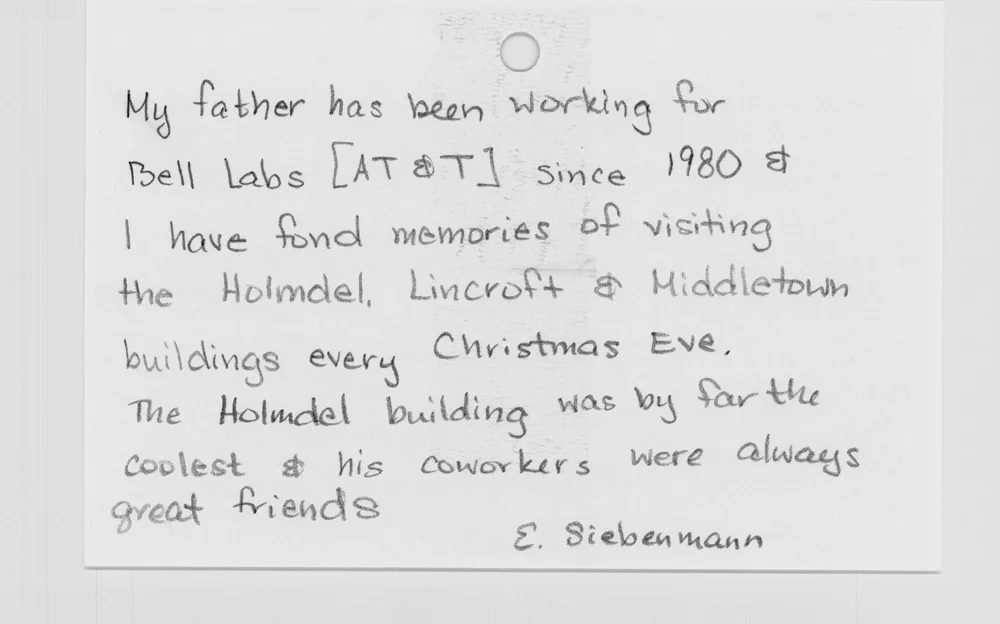 My father has been working for
Bell Labs [AT&T] since 1980 &
I have fond memories of visiting
the Holmdel, Lincroft & Middletown
buildings every Christmas Eve.
The Holmdel building was by far the
coolest & his coworkers were always
great friends
E. Siebenmann